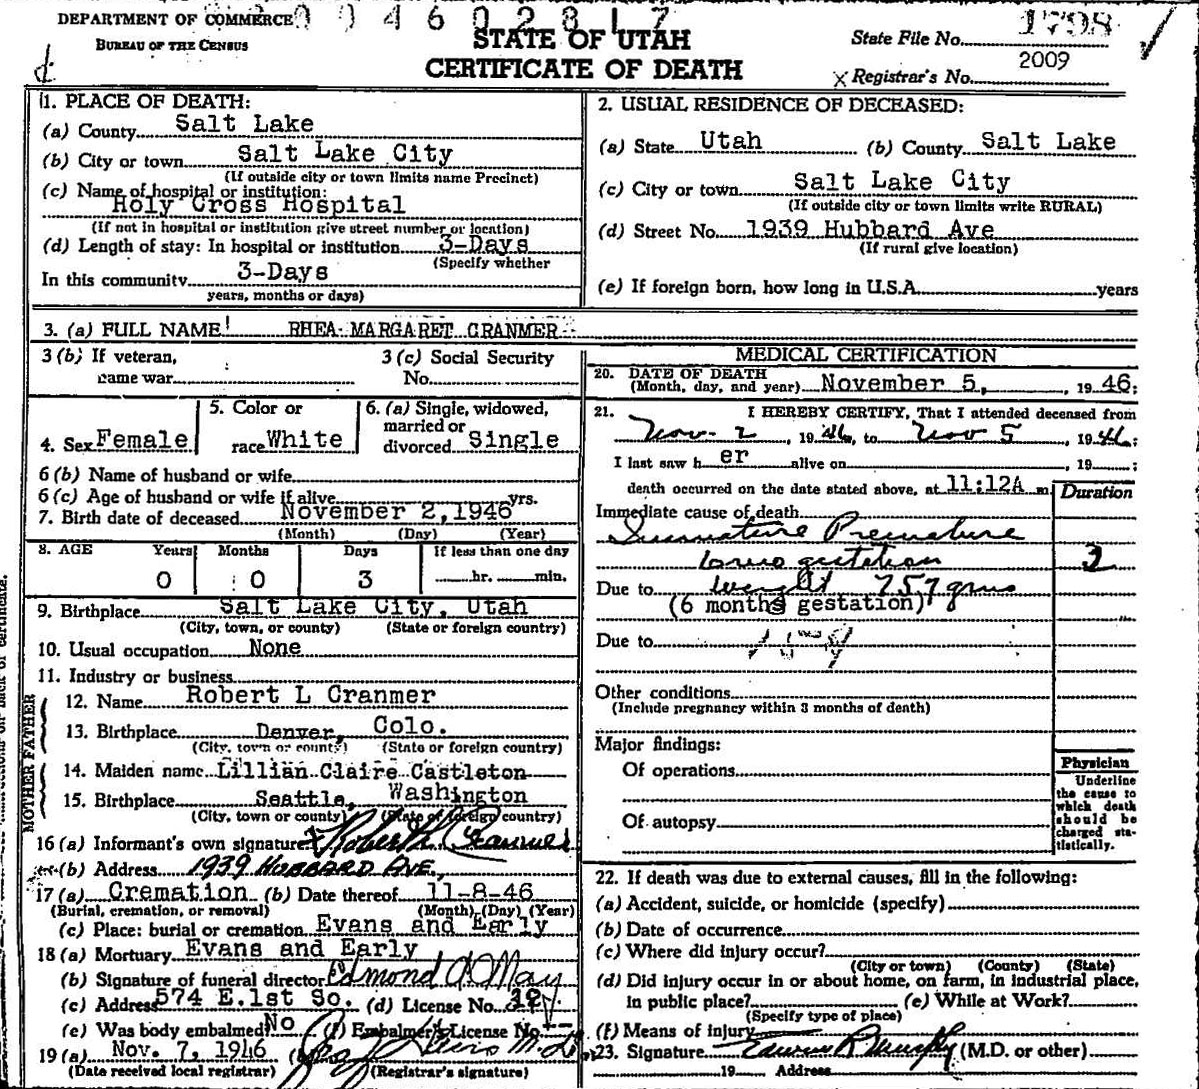 DEPARTMENT OF COMMERCE
BUREAU OF THE CENSUS
0 0 4 6 0 2 8 1 7
STATE OF UTAH
CERTIFICATE OF DEATH
State File No. 1798
X Registrar's No. 2009
1. PLACE OF DEATH:
(a) County Salt Lake
(b) City or town Salt Lake City
(If outside city or town limits name Precinct)
(c) Name of hospital or institution:
Holy Cross Hospital
(If not in hospital or institution give street number or location)
(d) Length of stay: In hospital or institution 3-Days
(Specify whether
In this community 3-Days
years, months or days)
2. USUAL RESIDENCE OF DECEASED:
(a) State Utah (b) County Salt Lake
(c) City or town Salt Lake City
(If outside city or town limits write RURAL)
(d) Street No. 1939 Hubbard Ave
(If rural give location)
(e) If foreign born, how long in U.S.A. years
3. (a) FULL NAME RHEA MARGARET CRANMER
3 (b) If veteran, 3 (c) Social Security
name war No.
4. Sex Female 5. Color or race White 6. (a) Single, widowed, married or divorced Single
6 (b) Name of husband or wife
6 (c) Age of husband or wife if alive yrs.
7. Birth date of deceased November 2, 1946
(Month) (Day) (Year)
8. AGE Years Months Days If less than one day
0 0 3 hr. min.
9. Birthplace Salt Lake City, Utah
(City, town, or county) (State or foreign country)
10. Usual occupation None
11. Industry or business
FATHER
12. Name Robert L Cranmer
13. Birthplace Denver, Colo.
(City, town or county) (State or foreign country)
MOTHER
14. Maiden name Lillian Claire Castleton
15. Birthplace Seattle, Washington
(City, town or county) (State or foreign country)
16 (a) Informant's own signature X Robert L Cranmer
(b) Address 1939 HUBBARD AVE.,
17 (a) Cremation (b) Date thereof 11-8-46
(Burial, cremation, or removal) (Month) (Day) (Year)
(c) Place: burial or cremation Evans and Early
18 (a) Mortuary Evans and Early
(b) Signature of funeral director Edmond A May
(c) Address 574 E. 1st So. (d) License No.
(e) Was body embalmed No (f) Embalmer's License No.
19 (a) Nov. 7, 1946
(Date received local registrar) (Registrar's signature)
MEDICAL CERTIFICATION
20. DATE OF DEATH
(Month, day, and year) November 5, 19 46;
21. I HEREBY CERTIFY, That I attended deceased from
Nov 2, 19 46, to Nov 5, 19 46;
I last saw h er alive on , 19 ;
death occurred on the date stated above, at 11:12A m
Duration
Immediate cause of death
Premature
gestation 3
Due to weight 757 gms
(6 months gestation)
Due to
Other conditions
(Include pregnancy within 3 months of death)
Major findings:
Of operations
Of autopsy
Physician
Underline
the cause to
which death
should be
charged sta-
tistically.
22. If death was due to external causes, fill in the following:
(a) Accident, suicide, or homicide (specify)
(b) Date of occurrence
(c) Where did injury occur?
(City or town) (County) (State)
(d) Did injury occur in or about home, on farm, in industrial place,
in public place? (e) While at Work?
(Specify type of place)
(f) Means of injury
23. Signature (M.D. or other)
19 Address